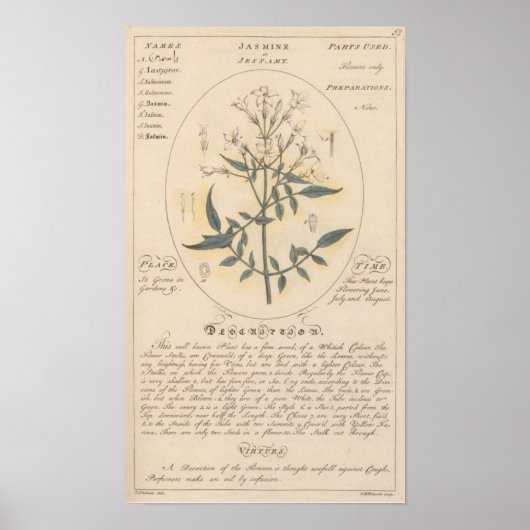 57
NAMES.
JASMINE
or
JESSAMY.
PARTS USED.
A.
G. Ιασμινον.
L. Jasminum.
I. Gelsomino.
G. Jasmin.
F. Jasmin.
S. Jazmin.
D. Jasmin.
Flowers only.
PREPARATIONS.
None.
PLACE.
It Grows in
Gardens &c.
TIME.
This Plant keeps
Flowering June,
July, and August.
DESCRIPTION.
This well known Plant has a firm wood, of a Whitish Colour. The
Flower Stalks, are Cramweld; of a deep Green, like the Leaves, without
any brightness, having few Veins, but are mid with a lighter Colour. The
Stalks, on which the Flowers grow, 1. divide Regularly, the Flower Cup,
is very shallow 2, but has five, five, or Six, 1. ny ends, according to the Divi-
sions of the Flower, of lighter Green than the Leaves. The buds, 3. are Green-
ish, but when Blown, 4. they are of a pure White, the Tube inclines to
Green. The ovary 5. is a light Green. The Style 6. is Short, parted from the
Top downward, near half the Length. The Chives 7. are very Short, fix'd
8. to the Inside of the Tube with two Summits 9. Cover'd with Yellow Fa-
rina. There are only two Seeds in a flower 10. The Stalk cut through.
VIRTUES.
A Decoction of the Flowers, is thought usefull against Coughs,
Perfumers make an oil by infusion.